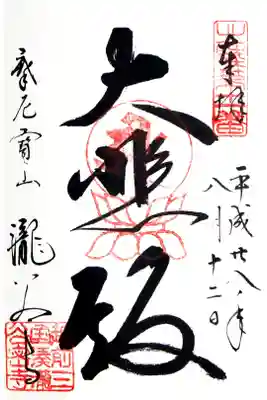 奉拝
平成廿八年
八月十二日
大悲殿
摩尼寳山 瀧谷寺